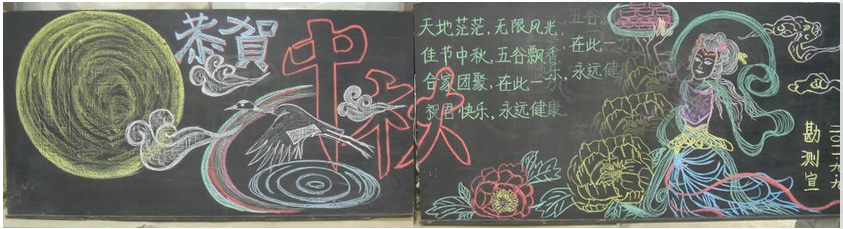 恭贺
中秋
天地茫茫，无限风光，
佳节中秋，五谷飘香，
合家团聚，在此一乐，
祝君快乐，永远健康
五谷
在此一
永远健康
勘测宣
二〇一一.九.九